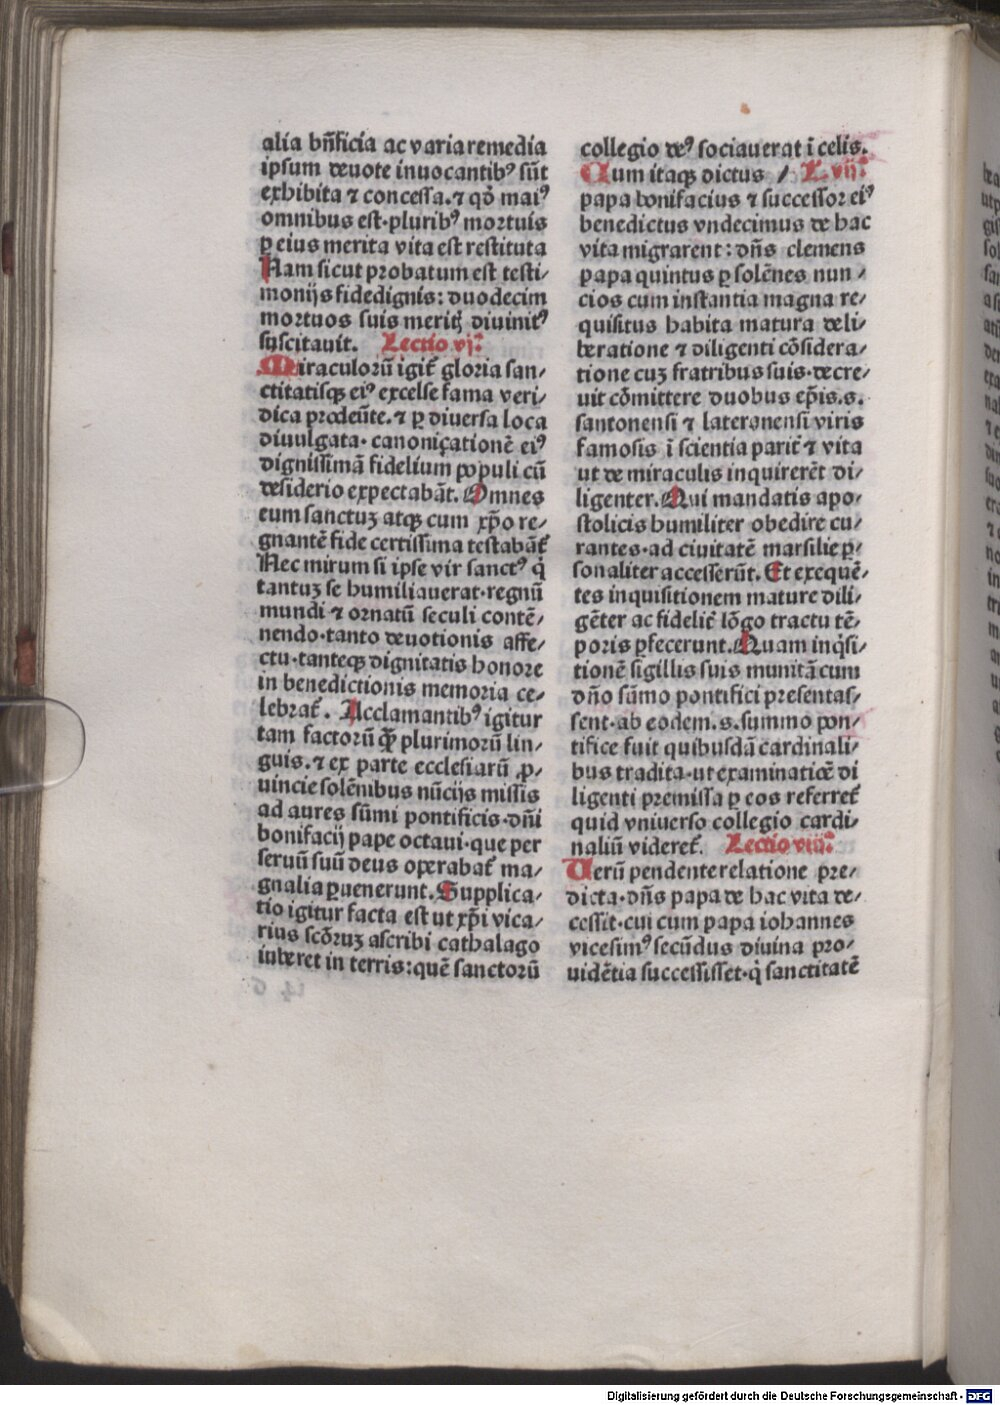 alia bn̄ficia ac varia remedia
ipsum deuote inuocantibꝰ sūt
exhibita ⁊ concessa.⁊ qd̕ maiꝰ
omnibus est·pluribꝰ mortuis
ꝑ eius merita vita est restituta
Nam sicut probatum est testi⸗
monijs fidedignis: duodecim
mortuos suis meritꝭ diuinitꝰ
suscitauit. Lectio vj.ª
Miraculorū igit᷑ gloria san⸗
ctitatisqꝫ eiꝰ excelse fama veri⸗
dica prodeūte.⁊ ꝑ diuersa loca
diuulgata·canoniçationē eiꝰ
dignissimā fidelium populi cū
desiderio expectabāt. Omnes
eum sanctuꝫ atqꝫ cum xp̄o re⸗
gnantē fide certissima testabāt᷑
Nec mirum si ipse vir sanctꝰ q̇
tantuꝫ se humiliauerat·regnū
mundi ⁊ ornatū seculi contē⸗
nendo·tanto deuotionis affe⸗
ctu·tanteqꝫ dignitatis honore
in benedictionis memoria ce⸗
lebrat᷑. Acclamantibꝰ igitur
tam factorū qꝫ̄ plurimorū lin⸗
guis.⁊ ex parte ecclesiarū ꝓ⸗
uincie solēnibus nūcijs missis
ad aures sūmi pontificis·dn̄i
bonifacij pape octaui·que per
seruū suū deus operabat᷑ ma⸗
gnalia ꝑuenerunt. Supplica⸗
tio igitur facta est ut xp̄i vica⸗
rius scōruꝫ ascribi cathalago
iuberet in terris:quē sanctorū
collegio deꝰ sociauerat ī celis.
Cum itaqꝫ dictus / L.vij.ª
papa bonifacius ⁊ successor eiꝰ
benedictus vndecimus de hac
vita migrarent: dn̄s clemens
papa quintus ꝑ solēnes nun⸗
cios cum instantia magna re⸗
quisitus habita matura deli⸗
beratione ⁊ diligenti cōsidera⸗
tione cuꝫ fratribus suis·decre⸗
uit cōmittere duobus ep̄is.s.
santonensi ⁊ lateronensi viris
famosis ī scientia parit᷑ ⁊ vita
ut de miraculis inquirerēt di⸗
ligenter. Qui mandatis apo⸗
stolicis humiliter obedire cu⸗
rantes·ad ciuitatē marsilie ꝑ⸗
sonaliter accesserūt. Et exequē⸗
tes inquisitionem mature dili⸗
gēter ac fidelit᷑ lōgo tractu tē⸗
poris ꝑfecerunt. Quam inq̇si⸗
tionē sigillis suis munitā cum
dn̄o sūmo pontifici presentas⸗
sent·ab eodem.s.summo pon⸗
tifice fuit quibusdā cardinali⸗
bus tradita·ut examinatiōe di
ligenti premissa ꝑ eos referret᷑
quid vniuerso collegio cardi⸗
naliū videret᷑. Lectio viij.ª
Uerū pendente relatione pre⸗
dicta·dn̄s papa de hac vita de⸗
cessit·cui cum papa iohannes
vicesimꝰ secūdus diuina pro⸗
uidētia successisset·q̇ sanctitatē
Digitalisierung gefördert durch die Deutsche Forschungsgemeinschaft - DFG